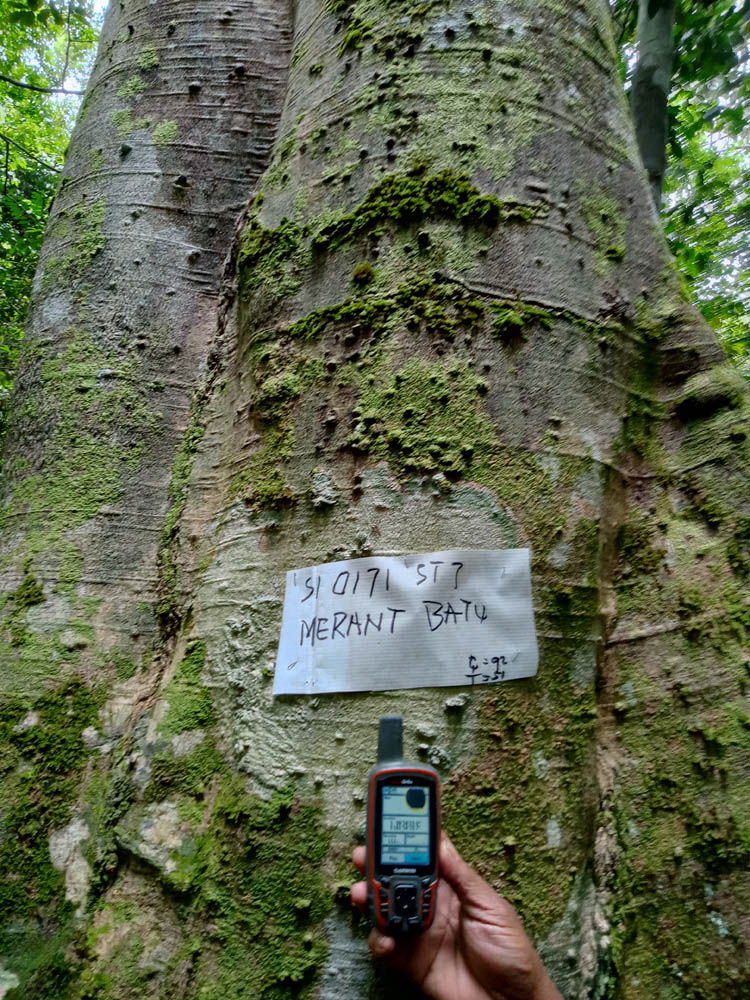 SI 0171 ST7
MERANT BATU
T = 51
GARMIN